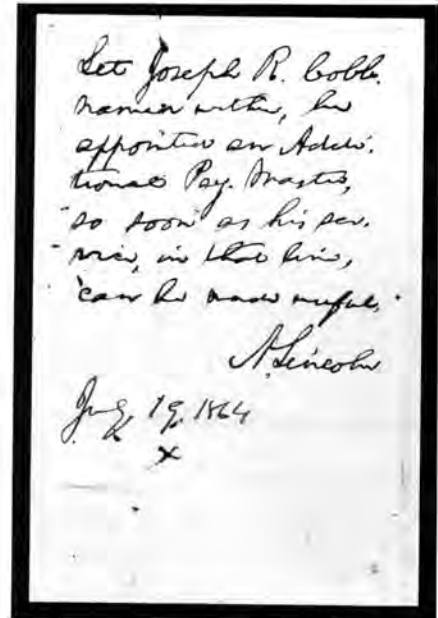 Let Joseph R. Cobb.
named within, be
appointed an Addi-
tional Pay-Master,
so soon as his ser-
vice, in that line,
can be made useful.
A. Lincoln
19, 1864
x